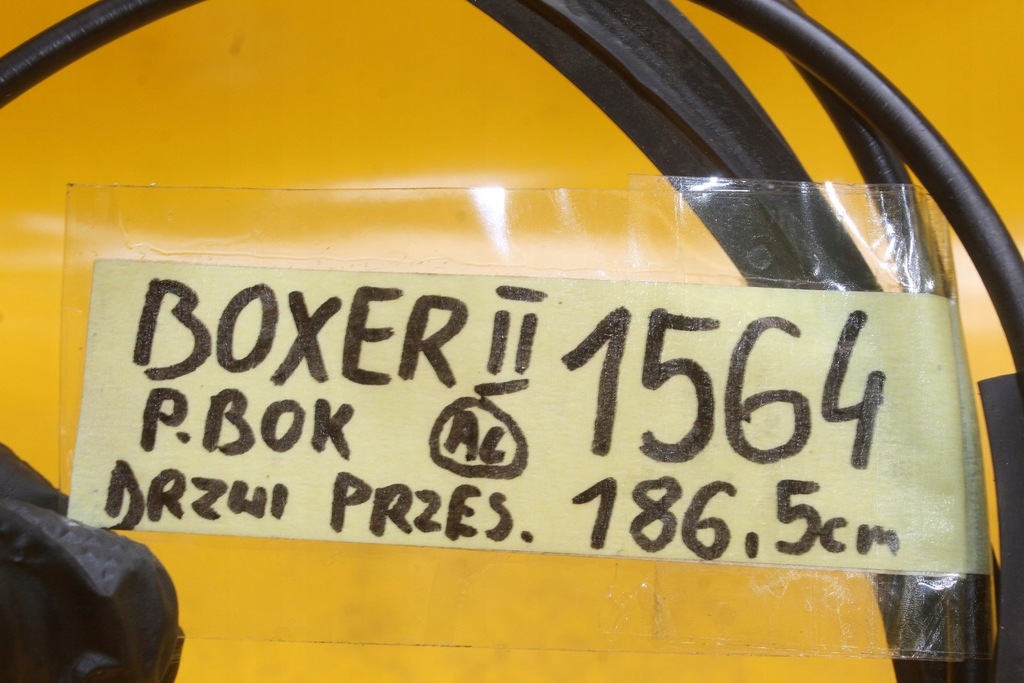 BOXER II 1564
P.BOK AL
DRZWI PRZES. 186,5cm